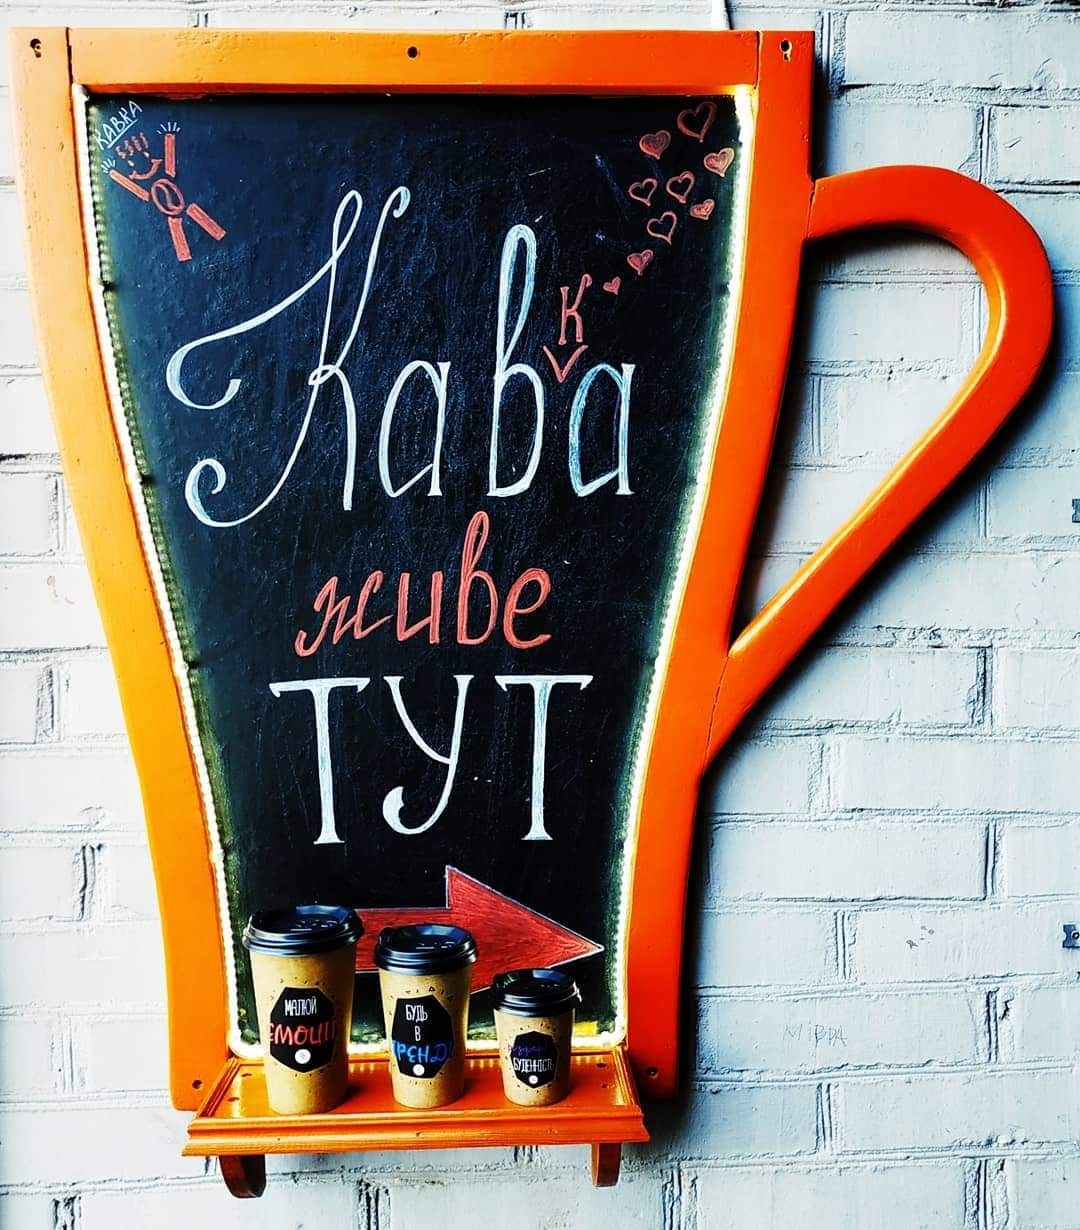 КАВКА
К
Кава
живе
ТУТ
МАЛЮЙ
ЕМОЦІЇ
БУДЬ
В
ТРЕНДІ
БУДЕННІСТЬ